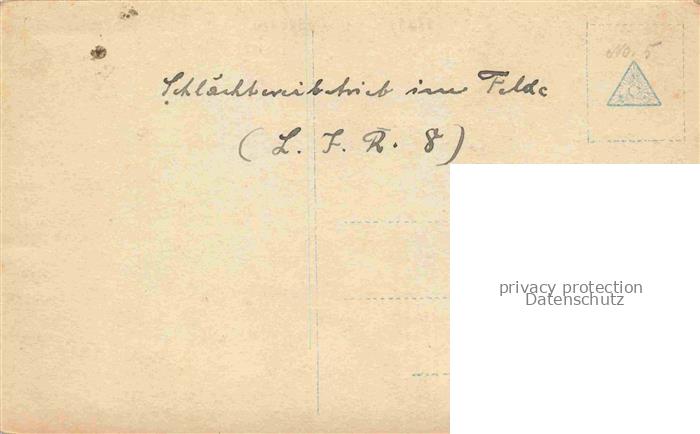 No. 5
Schlächtereibetrieb im Felde
(L. I. R. 8)
privacy protection
Datenschutz